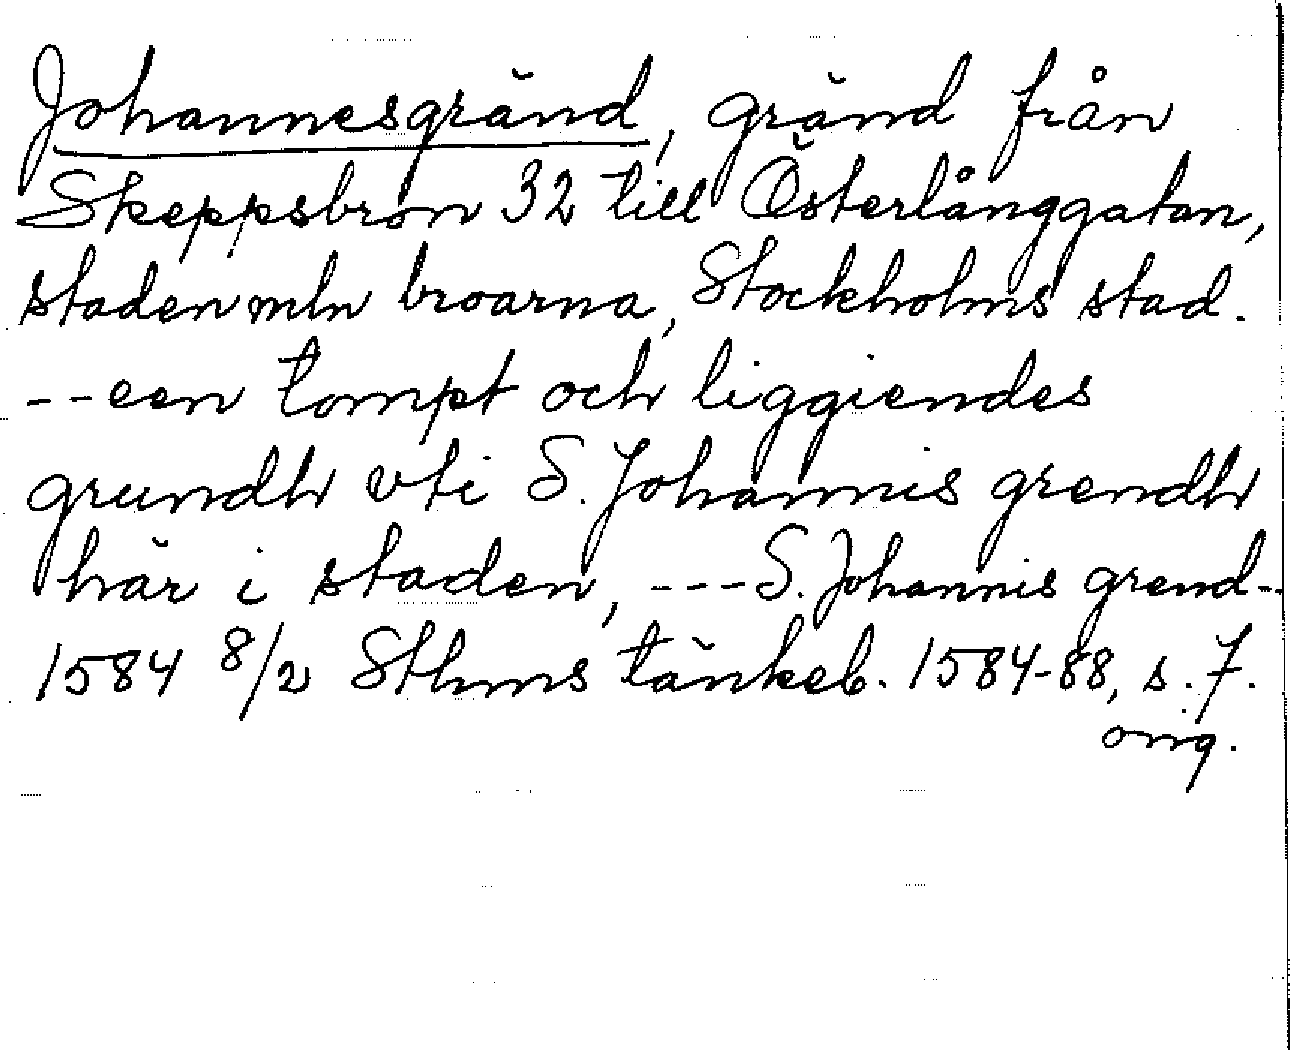 Johannesgränd, gränd från
Skeppsbron 32 till Österlånggatan,
staden mln broarna, Stockholms stad.
--een tompt och liggiendes
grundh vti S. Johannis grendh
här i staden, ---S. Johannis grend--
1584 8/2 Sthms tänkeb. 1584-88, s. 7.
orig.